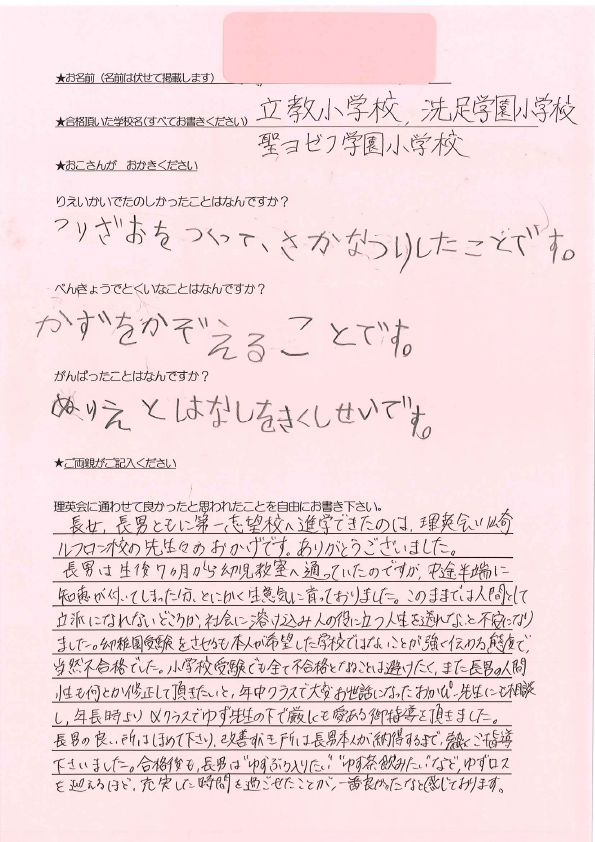 ★お名前（名前は伏せて掲載します）
★合格頂いた学校名(すべてお書きください) 立教小学校, 洗足学園小学校
聖ヨゼフ学園小学校
★おこさんが　おかきください
りえいかいでたのしかったことはなんですか？
つりざおを つくって、さかなつりしたことです。
べんきょうでとくいなことはなんですか？
かずをかぞえることです。
がんばったことはなんですか？
ぬりえ とはなしをきくしせいです。
★ご両親がご記入ください
理英会に通わせて良かったと思われたことを自由にお書き下さい。
長女, 長男ともに第一志望校へ進学できたのは, 理英会川崎
ルフロン校の先生々のおかげです。ありがとうございました。
長男は生後7ヶ月から幼児教室へ通っていたのですが, 中途半端に
知恵が付いてしまった分, とにかく生意気に育っておりました。このままでは人間として
立派になれないどころか, 社会に溶け込み人の役に立つ人生を送れないと不安になり
ました。幼稚園受験をさせるも本人が希望した学校ではないことが強く伝わる態度で,
当然不合格でした。小学校受験でも全て不合格となることは避けたく, また長男の人間
性も何とか修正して頂きたいと, 年中クラスで大変お世話になったおかぴー先生にも相談
し, 年長時よりαクラスでゆず先生の下で厳しくも愛ある御指導を頂きました。
長男の良い所はほめて下さり, 改善すべき所は長男本人が納得するまで, ご指導
下さいました。合格後も, 長男は"ゆずぶろ入りたい""ゆず茶飲みたい"など, ゆずロス
を迎えるほど, 充実した時間を過ごせたことが, 一番良かったなと感じております。